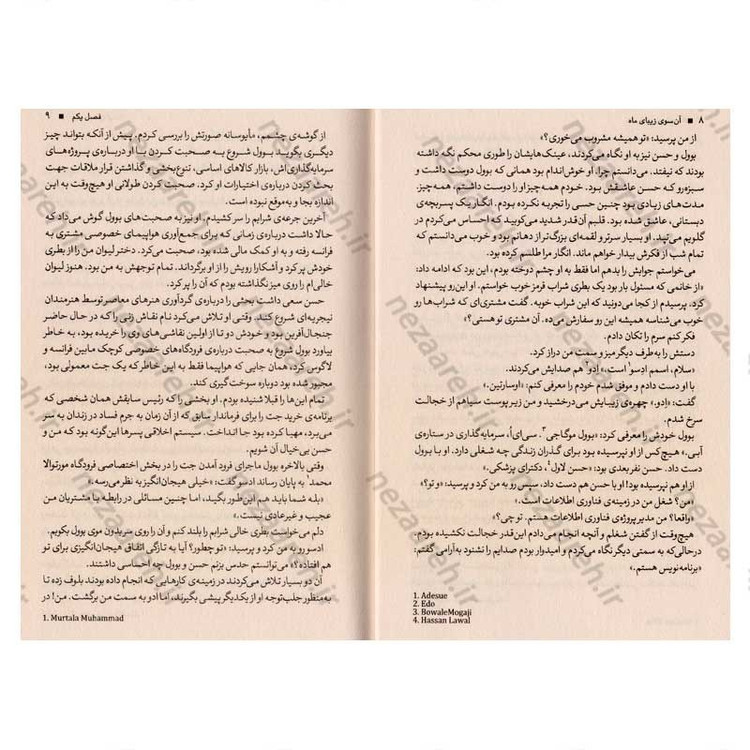 ۸ ■ آن‌سوی زیبای ماه
از من پرسید: «تو همیشه مشروب می‌خوری؟»
بوول و حسن نیز به او نگاه می‌کردند، عینک‌هایشان را طوری محکم نگه داشته
بودند که نیفتد. می‌دانستم چرا. او خوش‌اندام بود همانی که بوول دوست داشت و
سبزه‌رو که حسن عاشقش بود. خودم همه‌چیز او را دوست داشتم، همه‌چیز.
مدت‌های زیادی بود چنین حسی را تجربه نکرده بودم. انگار یک پسربچه‌ی
دبستانی، عاشق شده بود. قلبم آن‌قدر شدید می‌کوبید که احساس می‌کردم در
گلویم می‌تپد. او بسیار سرتر و لقمه‌ای بزرگ‌تر از دهانم بود و خوب می‌دانستم که
تمام شب از فکرش بیدار خواهم ماند. انگار مرا طلسم کرده بود.
می‌خواستم جوابش را بدهم اما فقط به او چشم دوخته بودم. این بود که ادامه داد:
«از خانمی که مسئول بار بود یک بطری شراب قرمز خوب خواستم. او این رو پیشنهاد
کرد. پرسیدم از کجا می‌دونید که این شراب خوبه. گفت مشتری‌ای که شراب‌ها رو
خوب می‌شناسه همیشه این رو سفارش می‌ده. آن مشتری تو هستی؟»
فکر کنم سرم را تکان دادم.
دستش را به‌طرف دیگر میز و سمت من دراز کرد.
«سلام، اسمم ادسو است.» «ادو» هم صدایش می‌کردند.
با او دست دادم و موفق شدم خودم را معرفی کنم: «اوسارتین.»
گفت: «اِدو.» چهره‌ی زیبایش می‌درخشید و من زیر پوست سیاهم از خجالت
سرخ شدم.
بوول خودش را معرفی کرد: «بوول موگاجی۳. سی‌ای‌اُ، سرمایه‌گذاری در ستاره‌ی
آبی.» هیچ‌کس از او نپرسیده بود برای گذران زندگی چه شغلی دارد. او با بوول
دست داد. حسن نفر بعدی بود: «حسن لاول۴، دکترای پزشکی.»
از او هم نپرسیده بود! او با حسن هم دست داد، سپس رو به من کرد و پرسید: «و تو؟»
«من؟ شغل من در زمینه‌ی فناوری اطلاعات است.»
«واقعا؟ من مدیر پروژه‌ی فناوری اطلاعات هستم. تو چی؟»
هیچ‌وقت از گفتن شغلم و آنچه انجام می‌دادم این‌قدر خجالت نکشیده بودم.
درحالی‌که به سمتی دیگر نگاه می‌کردم و امیدوار بودم صدایم را نشنود به‌آرامی گفتم:
«برنامه‌نویس هستم.»
1. Adesue
2. Edo
3. BowaleMogaji
4. Hassan Lawal
فصل یکم ■ ۹
از گوشه‌ی چشمم، مأیوسانه صورتش را بررسی کردم. پیش از آنکه بتواند چیز
دیگری بگوید بوول شروع به صحبت کردن با او درباره‌ی پروژه‌های
سرمایه‌گذاری‌اش، بازار کالاهای اساسی، تنوع‌بخشی و گذاشتن قرار ملاقات جهت
بحث کردن درباره‌ی اختیارات او کرد. صحبت کردن طولانی او هیچ‌وقت به این
اندازه بجا و به‌موقع نبوده است.
آخرین جرعه‌ی شرابم را سر کشیدم. او نیز به صحبت‌های بوول گوش می‌داد که
حالا داشت درباره‌ی زمانی که برای جمع‌آوری هواپیمای خصوصی مشتری به
فرانسه رفته و به او کمک مالی شده بود، صحبت می‌کرد. دختر لیوان من را از بطری
خودش پر کرد و آشکارا رویش را از او برگرداند. تمام توجهش به من بود. هنوز لیوان
خالی‌ام را روی میز نگذاشته بودم که آن را پر کرد.
حسن سعی داشت بحثی را درباره‌ی گردآوری هنرهای معاصر توسط هنرمندان
نیجریه‌ای شروع کند. وقتی او تلاش می‌کرد نام نقاش زنی را که در حال حاضر
جنجال‌آفرین بود و خودش دو تا از اولین نقاشی‌های وی را خریده بود، به خاطر
بیاورد بوول شروع به صحبت درباره‌ی فرودگاه‌های خصوصی کوچک مابین فرانسه و
لاگوس کرد، همان جایی که هواپیما فقط به این خاطر که یک جت معمولی بود،
مجبور شده بود دوباره سوخت‌گیری کند.
تمام این‌ها را قبلا شنیده بودم. او بخشی را که رئیس سابقش همان شخصی که
برنامه‌ی خرید جت را برای فرماندار سابق که از آن زمان به جرم فساد در زندان به سر
می‌برد، مهیا کرده بود جا انداخت. سیستم اخلاقی پسرها این‌گونه بود که من و
حسن بی‌خیال آن شویم.
وقتی بالاخره بوول ماجرای فرود آمدن جت را در بخش اختصاصی فرودگاه مورتوالا
محمد۱ به پایان رساند ادسو گفت: «خیلی هیجان‌انگیز به نظر می‌رسه.»
«بله شما باید هم این‌طور بگید، اما چنین مسائلی در رابطه با مشتریان من
عجیب و غیرعادی نیست.»
دلم می‌خواست بطری خالی شرابم را بلند کنم و آن را روی سر بدون موی بوول بکوبم.
ادسو رو به من کرد و پرسید: «تو چطور؟ آیا به تازگی اتفاق هیجان‌انگیزی برای تو
هم افتاده؟» می‌توانستم حدس بزنم حسن و بوول چه احساسی داشتند.
آن دو بسیار تلاش می‌کردند در زمینه‌ی کارهایی که انجام داده بودند بلوف زده تا
به‌منظور جلب‌توجه او از یکدیگر پیشی بگیرند، اما ادو به سمت من برگشت. من! در
1. Murtala Muhammad
nezaareh.ir